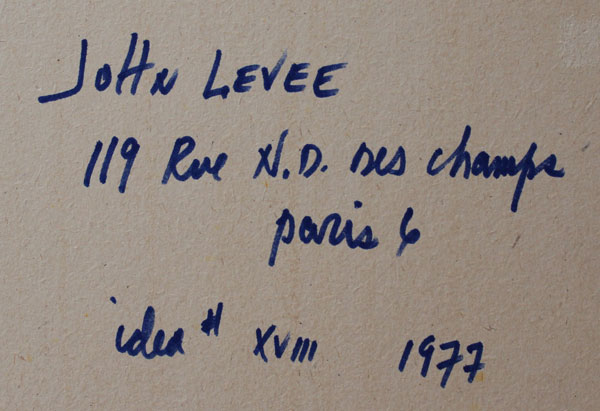 JOHN LEVEE
119 Rue N.D. Des Champs
paris 6
idea # XVIII 1977